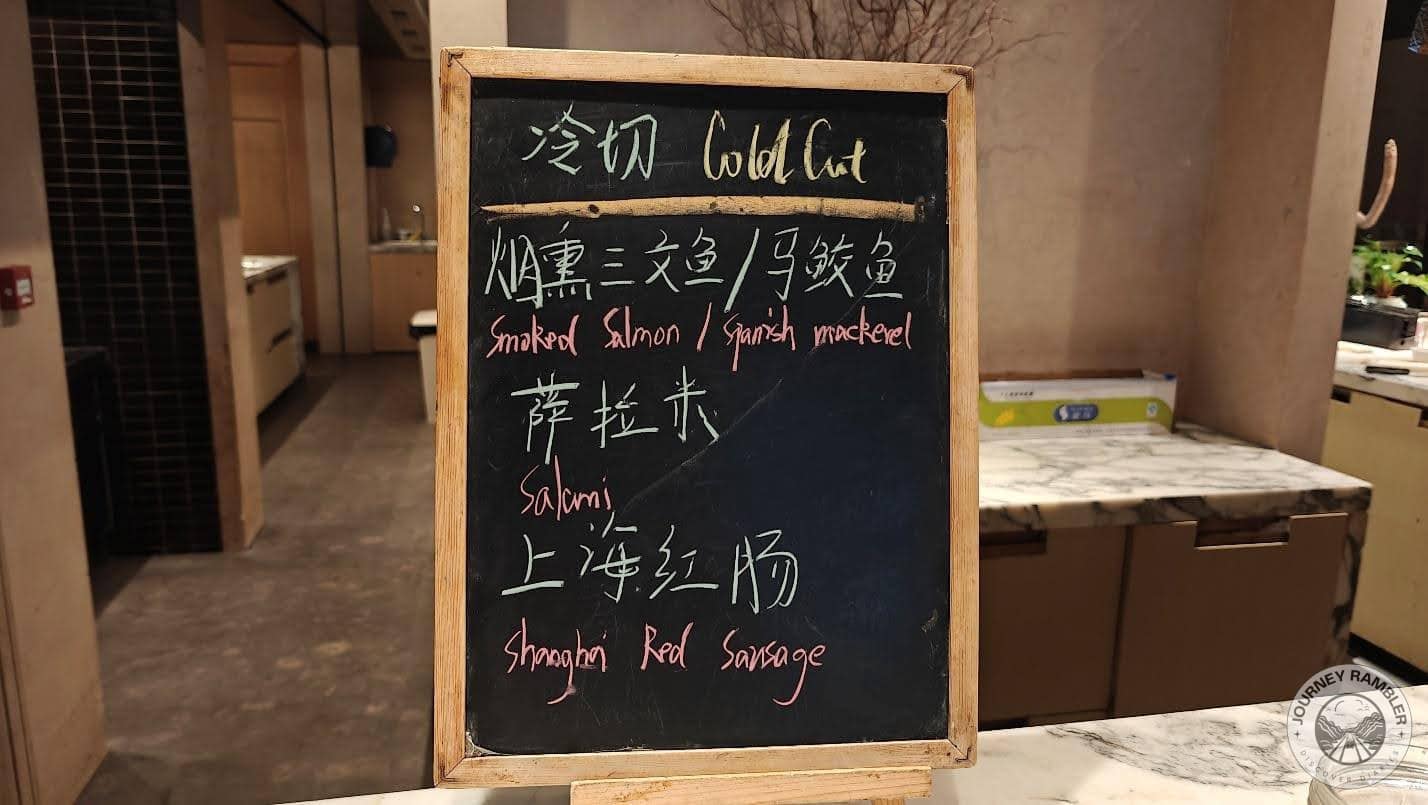 冷切 Cold Cut
烟熏三文鱼/马鲛鱼
Smoked Salmon / Spanish mackerel
萨拉米
Salami
上海红肠
Shanghai Red Sausage
JOURNEY RAMBLER
DISCOVER DIARIES